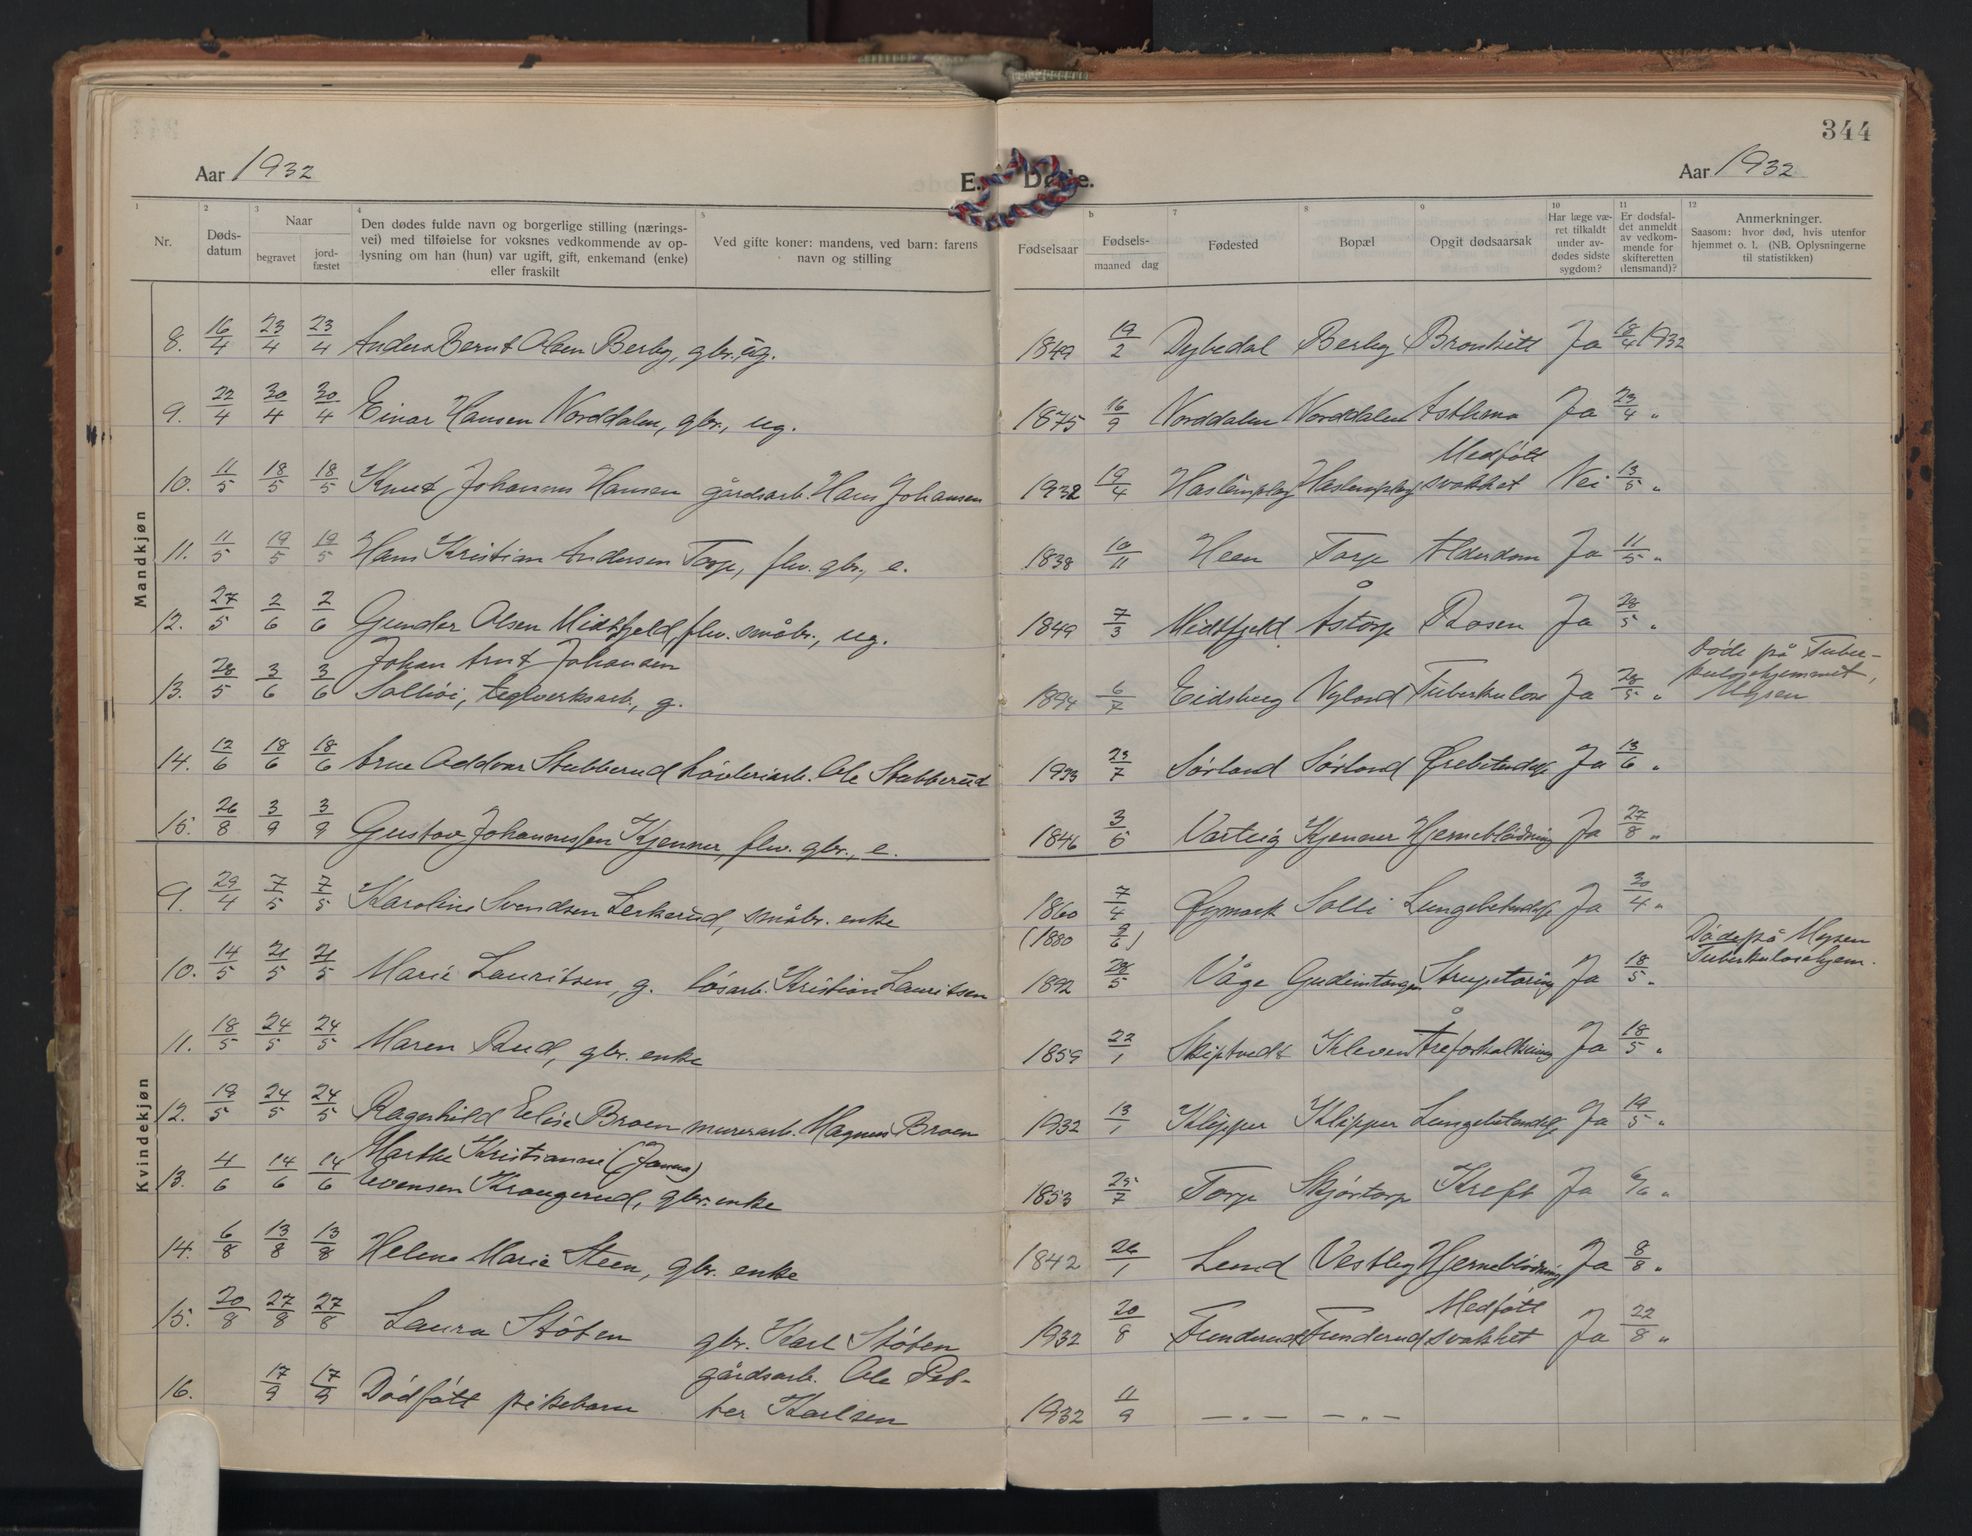 344
Aar 1932 E. Døde. Aar 1932
1 2 3 4 5 6 7 8 9 10 11 12
Nr.
Dødsdatum
Naar
begravet
jordfæstet
Den dødes fulde navn og borgerlige stilling (næringsvei) med tilføielse for voksnes vedkommende av oplysning om han (hun) var ugift, gift, enkemand (enke) eller fraskilt
Ved gifte koner: mandens, ved barn: farens navn og stilling
Fødselsaar
Fødsels-
maaned dag
Fødested
Bopæl
Opgit dødsaarsak
Har læge været tilkaldt under avdødes sidste sygdom?
Er dødsfaldet anmeldt av vedkommende for skifteretten (lensmand)?
Anmerkninger.
Saasom: hvor død, hvis utenfor hjemmet o. l. (NB. Oplysningerne til statistikken)
Mandkjøn
8. 16/4 23/4 23/4 Anders Bernt Olsen Berby, gbr. ug. 1849 19/2 Dybedal Berby Bronkitt Ja 18/4 1932
9. 22/4 30/4 30/4 Einar Hansen Norddalen, gbr., ug. 1875 16/9 Norddalen Norddalen Asthma Ja 23/4 "
10. 11/5 18/5 18/5 Knut Johannes Hansen gårdsarb. Hans Johansen 1932 19/4 Haslemplog Haslemplog Medføtt svakhet Nei 13/5 "
11. 11/5 19/5 19/5 Hans Kristian Andersen Torp, flw. gbr., e. 1838 10/11 Heen Torp Alderdom Ja 11/5 "
12. 27/5 2/6 2/6 Gunder Olsen Midtfjeld, flw. småbr., ug. 1849 7/3 Midtfjeld Åstorp Rosen Ja 28/5 "
13. 28/5 3/6 3/6 Johan Arnt Johansen
Solhøi, teglverksarb., g. 1894 6/7 Eidsberg Nyland Tuberkulose Ja 28/5 " Døde på Tuberkulosehjemmet, Mysen
14. 12/6 18/6 18/6 Arne Oddvar Stubberud høvleriarb. Ole Stubberud 1923 23/7 Sørland Sørland Ørebetendelse Ja 13/6 "
15. 26/8 3/9 3/9 Gustav Johannessen Kjenner, flw. gbr., e. 1846 3/5 Varteig Kjenner Hjerneblødning Ja 27/8 "
Kvindekjøn
9. 29/4 7/5 7/5 Karoline Svendsen Lerkerud, småbr. enke 1860 7/4 Øymark Solli Lungebetendelse Ja 30/4 "
(1880 2/6)
10. 14/5 21/5 21/5 Marie Lauritsen, g. løsarb. Kristian Lauritsen 1892 28/5 Våge Gudeimtangen Strupetæring Ja 18/5 " Døde på Mysen Tuberkulosehjem.
11. 18/5 24/5 24/5 Maren Rud, gbr. enke 1859 22/1 Skiptvedt Kleven Åreforkalkning Ja 18/5 "
12. 19/5 24/5 24/5 Ragnhild Elise Broen murerarb. Magnus Broen 1932 13/1 Klipper Klipper Lungebetendelse Ja 19/5 "
13. 4/6 14/6 14/6 Marthe Kristianne (Janna)
Evensen Krougerud, gbr. enke 1853 25/7 Torp Skjørtorp Kreft Ja 6/6 "
14. 6/8 13/8 13/8 Helene Marie Steen, gbr. enke 1842 26/1 Lund Vestby Hjerneblødning Ja 8/8 "
15. 20/8 27/8 27/8 Laura Støten gbr. Karl Støten 1932 20/8 Funderud Funderud Medføtt svakhet Ja 22/8 "
16. 17/9 17/9 Dødfött pikebarn gårdsarb. Ole Petter Karlsen 1932 11/9 — . — — . —